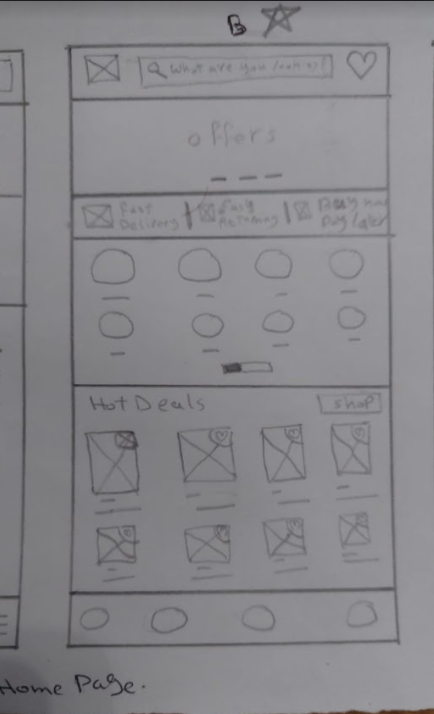 B
What are you looking?
offers
Fast Delivery
Easy Returning
Buy now Pay later
Hot Deals
shop
Home Page.